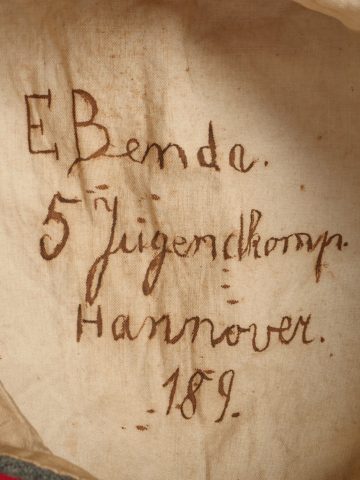 E Benda.
5ⁿ Jugendkomp.
Hannover.
189.